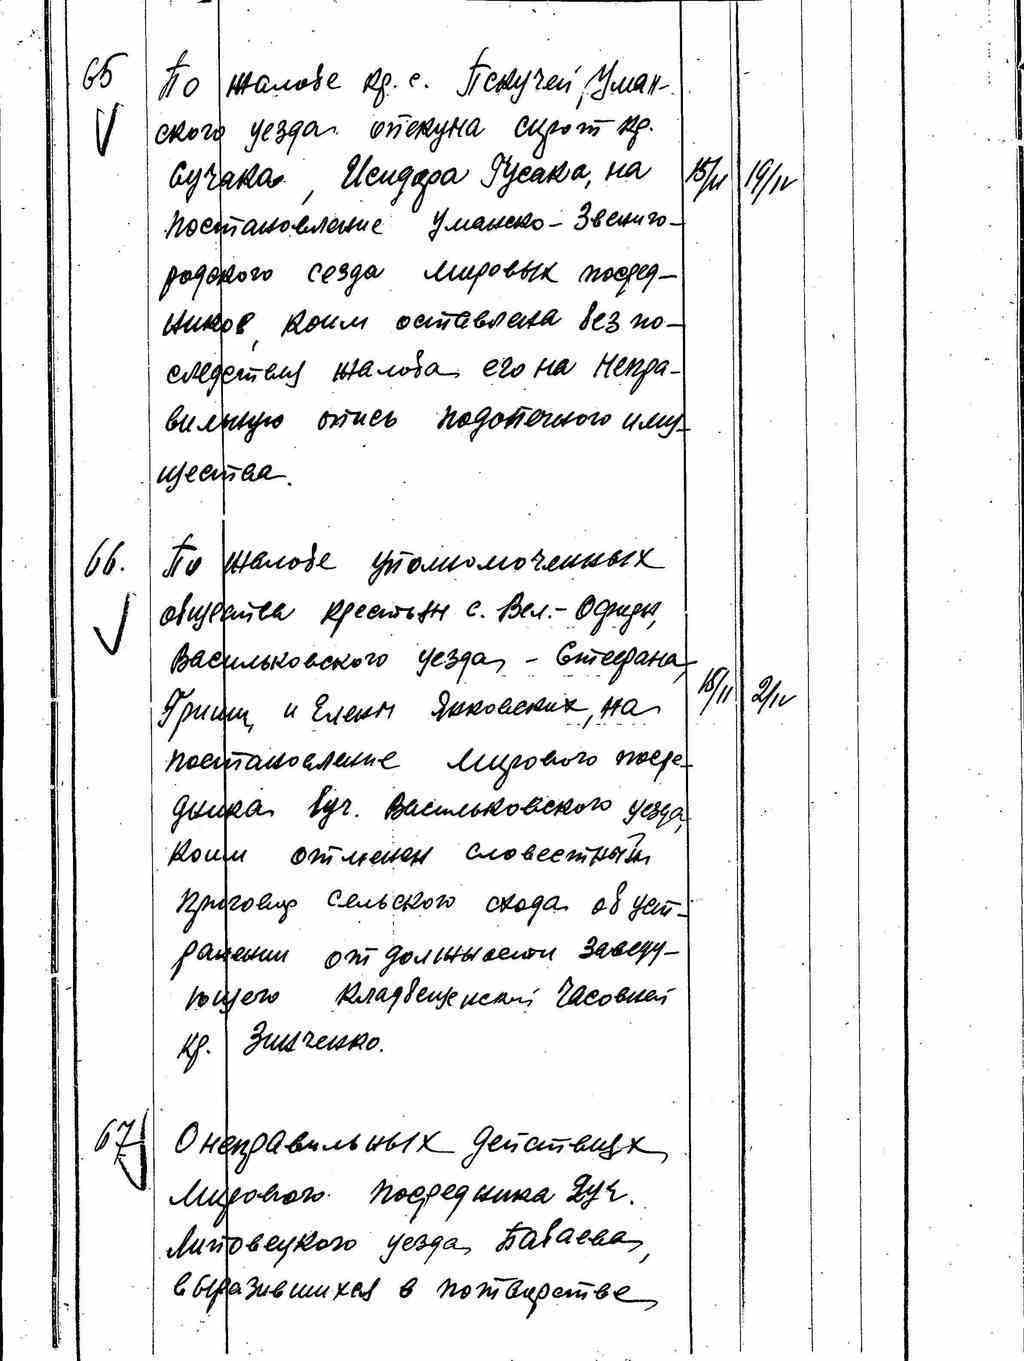 65 По жалобе кр. с. Пскучей, Уман-
ского уезда опекуна сирот кр.
Сучака, Исидора Гусака, на 15/II 19/IV
постановление Уманско-Звениго-
родского сезда мировых посред-
ников, коим оставлена без по-
следствия жалоба его на непра-
вильную опись подопечного иму-
щества.
66. По жалобе уполномоченных
общества крестьян с. Вел.-
Васильковского уезда, - Стефана, 18/II 2/IV
и Елены Янковских, на
постановление мирового посре-
дника уч. Васильковского уезда,
коим отменен словестный
приговор сельского схода об уст-
ранении от должности заведу-
ющего кладбещенской часовней
кр. Зинченко.
67 О неправильных действиях
мирового посредника 2 уч.
Липовецкого уезда Бабаева,
выразившихся в потворстве